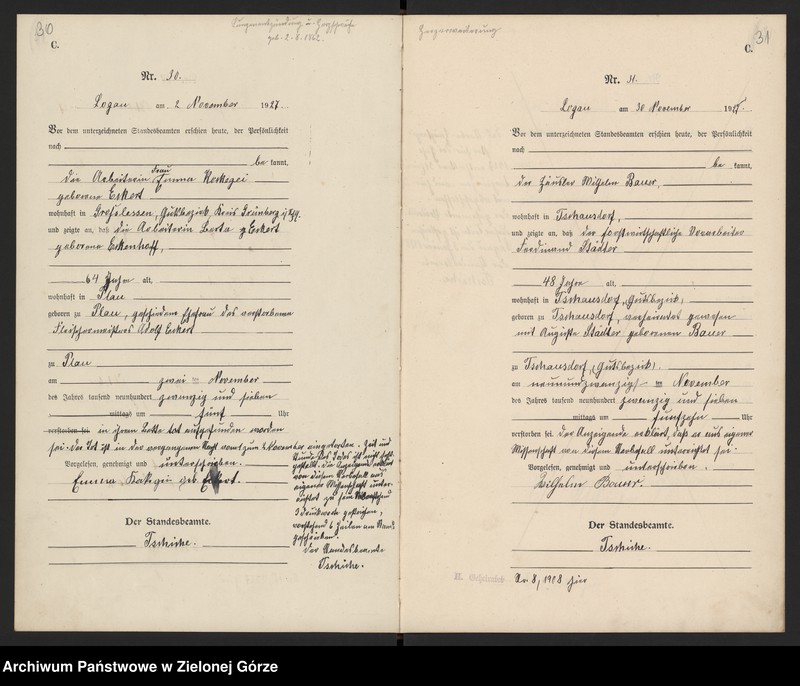 30
Lungenentzündung u.
geb. 2.8.1862.
C.
Nr. 30.
Logau am 2 November 1927.
Vor dem unterzeichneten Standesbeamten erschien heute, der Persönlichkeit
nach
be kannt,
die Arbeiterin Frau Emma
geborene Eckert
wohnhaft in Grosslessen, Gutsbezirk, Kreis Grünberg i/Schl.
und zeigte an, daß die Arbeiterin Berta Eckert
geborene Eckenhoff,
64 Jahre alt,
wohnhaft in Plau
geboren zu Plau, geschiedene Ehefrau des verstorbenen
Fleischermeisters Adolf Eckert
zu Plau
am zwei ten November
des Jahres tausend neunhundert zwanzig und sieben
mittags um fünf Uhr
verstorben sei. in ihrem Bette tot aufgefunden worden
sei. Der Tod ist in der vergangenen Nacht vom 1 zum 2 November eingetreten. Zeit und
Stunde des Todes ist nicht fest-
gestellt. Die Anzeigende erklärt
von diesem Sterbefall aus
eigener Wissenschaft unter-
richtet zu sein. Vorstehend
3 Druckworte gestrichen,
vorstehend 6 Zeilen am Rande
geschrieben.
Der Standesbeamte
Tschirke.
Vorgelesen, genehmigt und unterschrieben.
Emma geb. Eckert.
Der Standesbeamte.
Tschirke.
31
C.
Nr. 31.
Logau am 30 November 1927.
Vor dem unterzeichneten Standesbeamten erschien heute, der Persönlichkeit
nach
be kannt,
der Häusler Wilhelm Bauer,
wohnhaft in Tschausdorf,
und zeigte an, daß der forstwirtschaftliche Vorarbeiter
Ferdinand Städter
48 Jahre alt,
wohnhaft in Tschausdorf, Gutsbezirk,
geboren zu Tschausdorf, verheiratet gewesen
mit Auguste Städter geborenen Bauer
zu Tschausdorf, (Gutsbezirk)
am neunundzwanzigs ten November
des Jahres tausend neunhundert zwanzig und sieben
mittags um fünfzehn Uhr
verstorben sei. Der Anzeigende erklärt, daß er aus eigener
Wissenschaft von diesem Sterbefall unterrichtet sei.
Vorgelesen, genehmigt und unterschrieben.
Wilhelm Bauer.
Der Standesbeamte.
Tschirke.
8/1908 hier
Archiwum Państwowe w Zielonej Górze